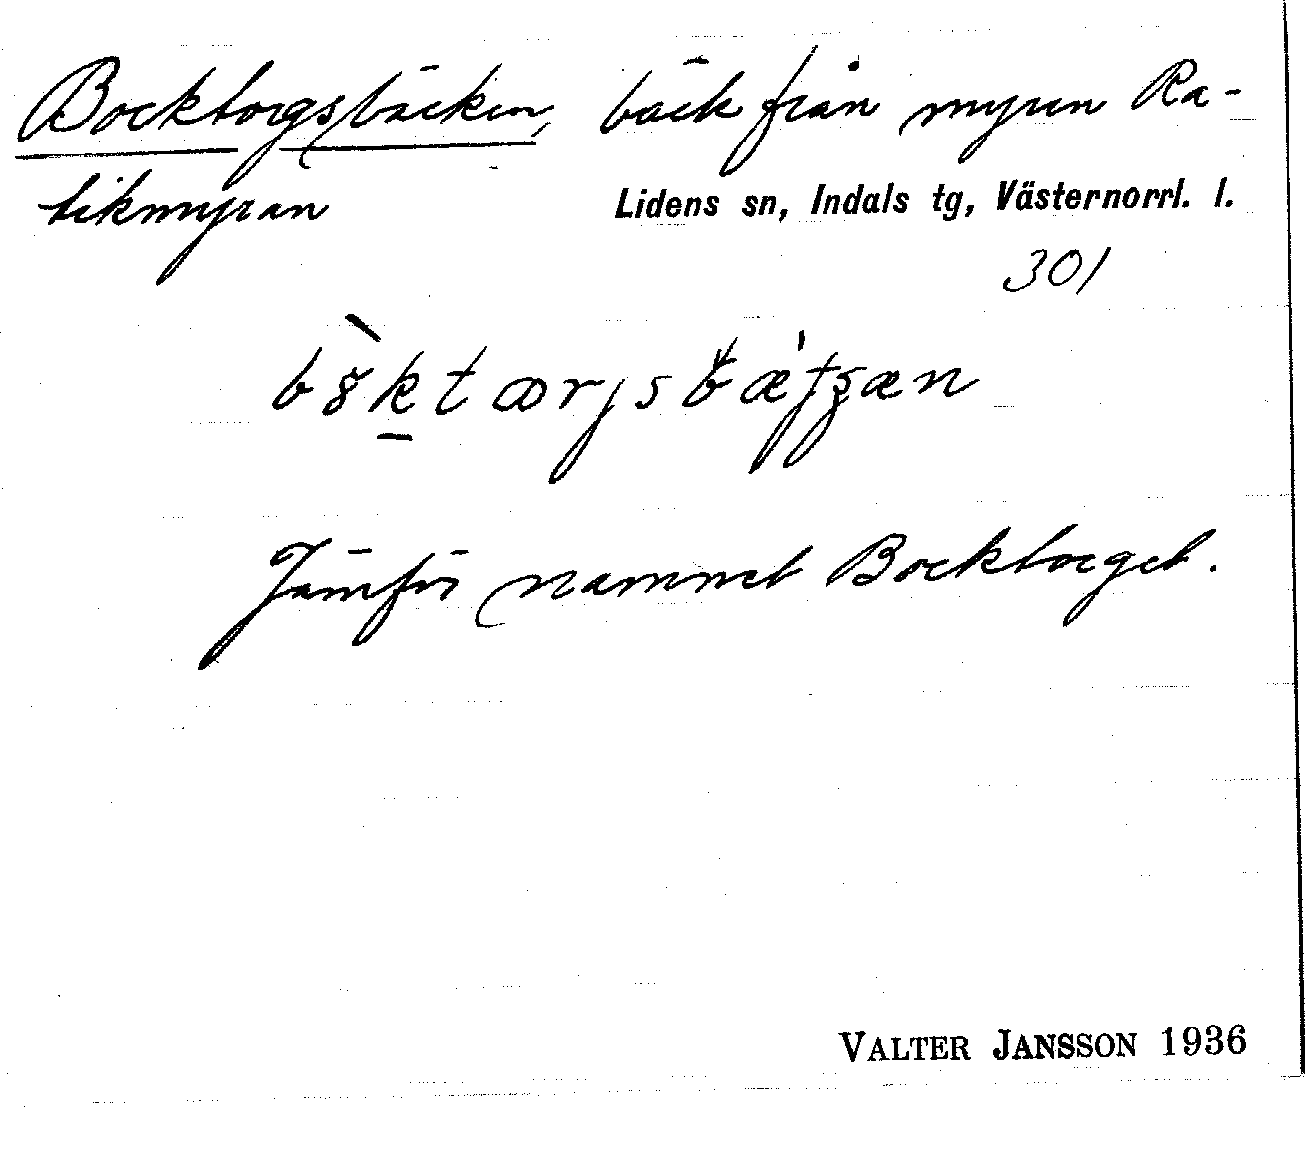 Bocktorgsbäcken, bäck från myren Ra-
tikmyran
Lidens sn, Indals tg, Västernorrl. l.
301
Jämför namnet Bocktorget.
VALTER JANSSON 1936